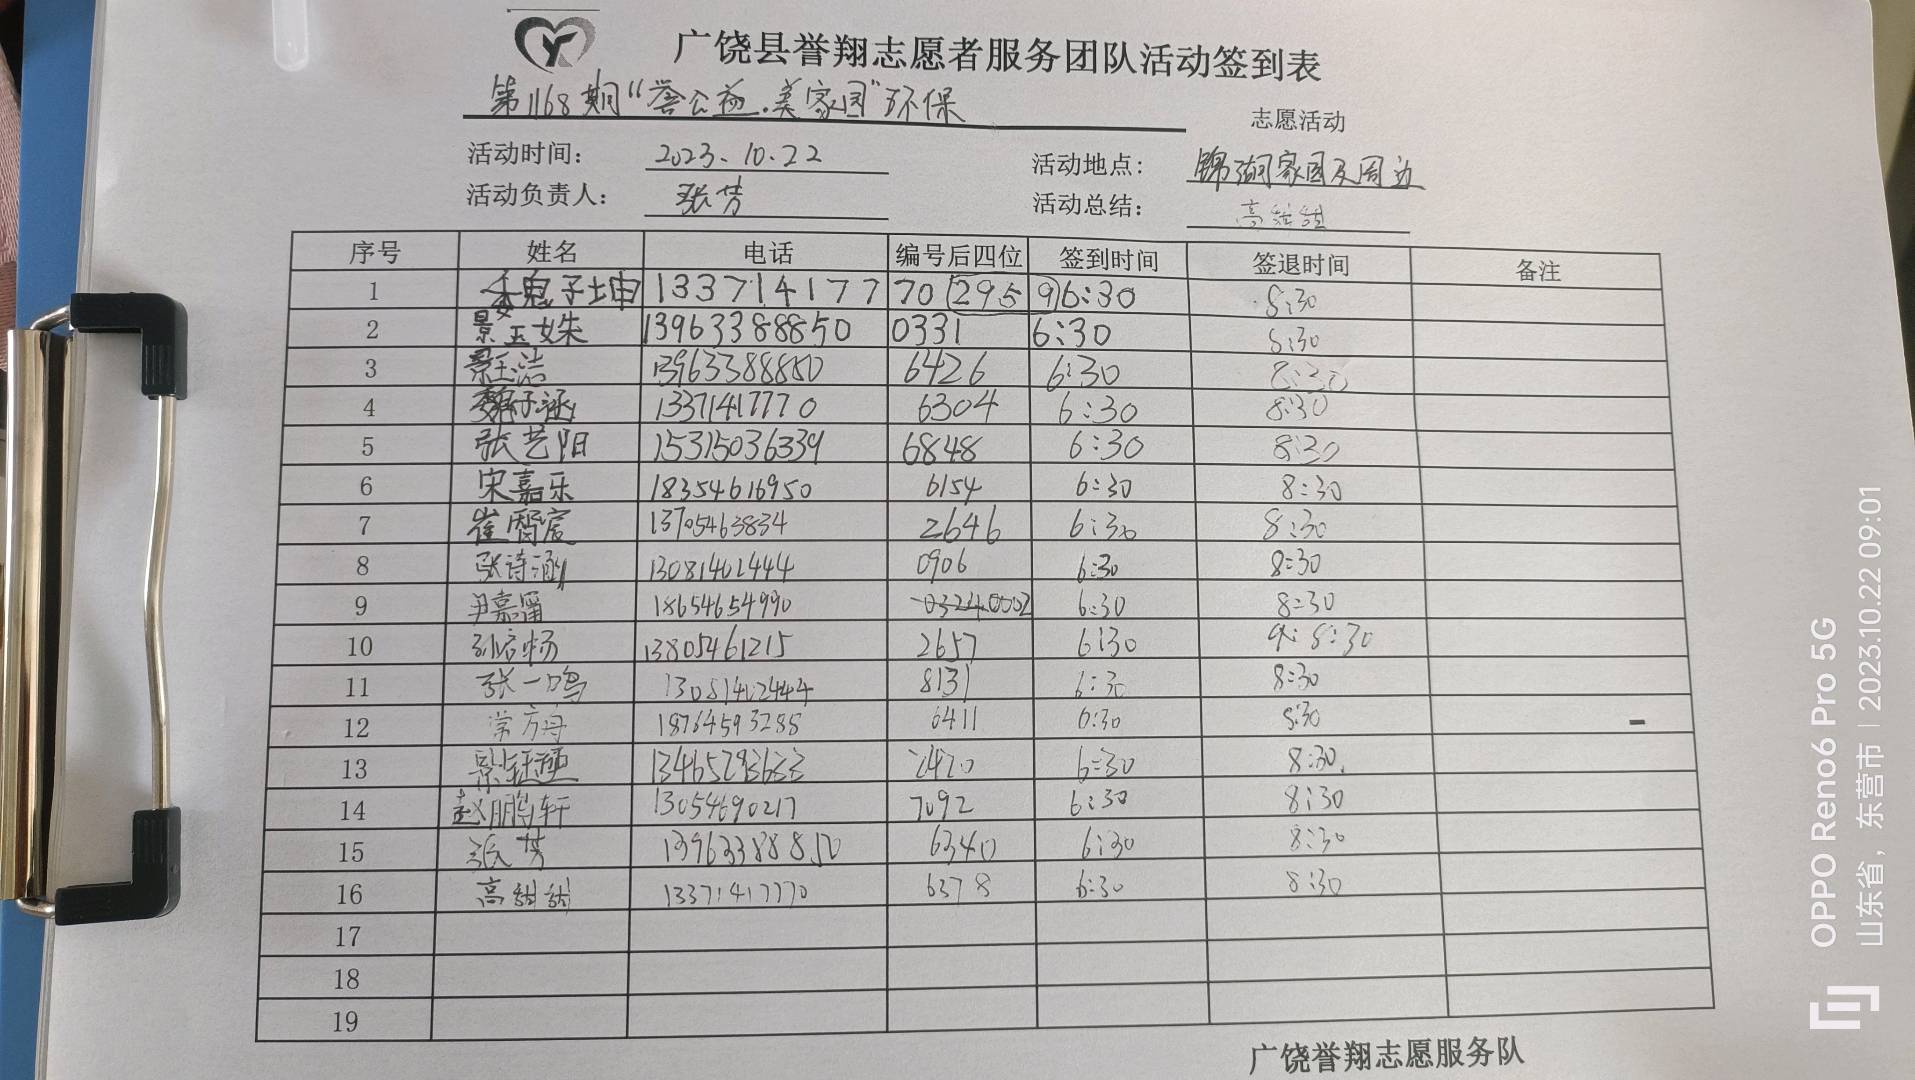 广饶县誉翔志愿者服务团队活动签到表
第1168期“誉公益.美家园”环保 志愿活动
活动时间: 2023.10.22 活动地点: 锦湖家园及周边
活动负责人: 张芳 活动总结: 高甜甜
序号 姓名 电话 编号后四位 签到时间 签退时间 备注
1 魏子坤 13371417770 2959 6:30 8:30
2 景玉姝 13963388850 0331 6:30 8:30
3 景玉洁 13963388850 6426 6:30 8:30
4 魏子涵 13371417770 6304 6:30 8:30
5 张艺阳 15315036339 6848 6:30 8:30
6 宋嘉乐 18354616950 6154 6:30 8:30
7 崔 宸 13705463834 2646 6:30 8:30
8 张诗涵 13081402444 0906 6:30 8:30
9 尹嘉 18654654990 0002 6:30 8:30
10 孙 畅 13805461215 2657 6:30 8:30
11 张一鸣 13081402444 8131 6:30 8:30
12 常方舟 18764593285 6411 6:30 8:30
13 景 2420 6:30 8:30
14 赵鹏轩 13054690217 7092 6:30 8:30
15 张芳 13963388850 6340 6:30 8:30
16 高甜甜 13371417770 6378 6:30 8:30
17
18
19
广饶誉翔志愿服务队
OPPO Reno6 Pro 5G
山东省，东营市 | 2023.10.22 09:01